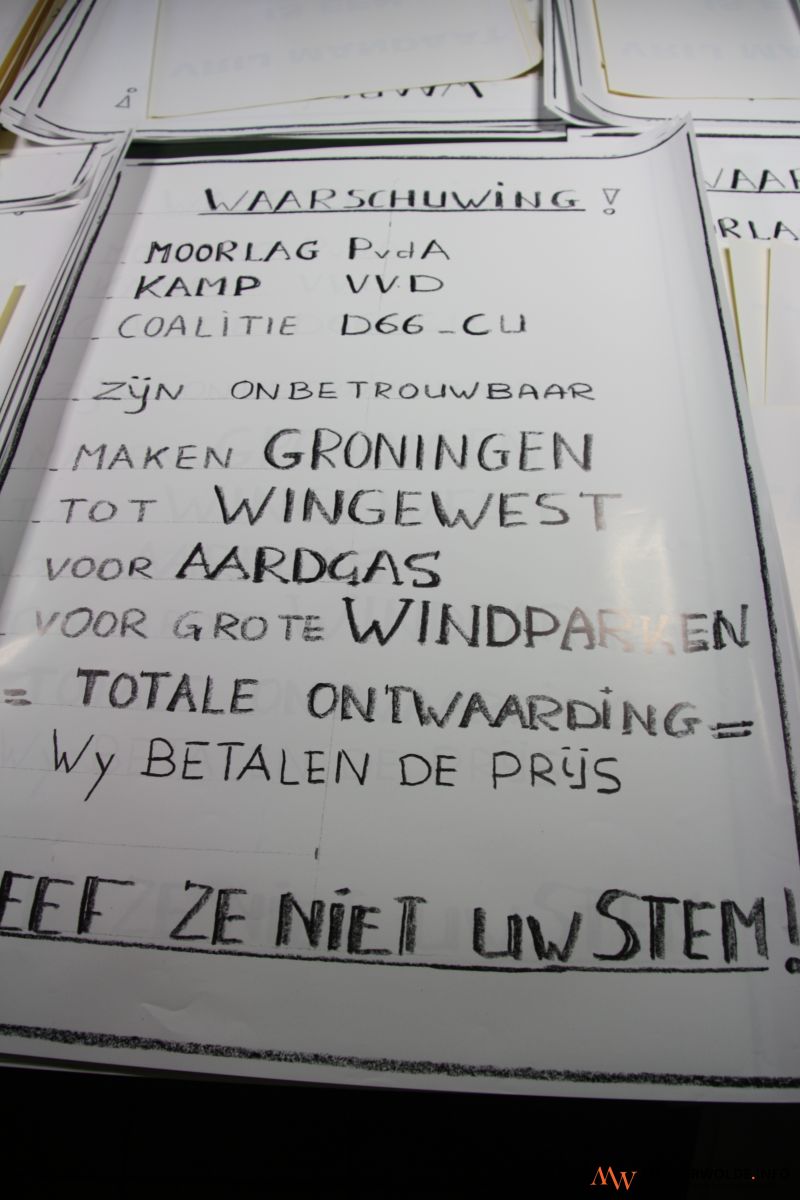 WAARSCHUWING!
MOORLAG PvdA
KAMP VVD
COALITIE D66-CU
ZIJN ONBETROUWBAAR
MAKEN GRONINGEN
TOT WINGEWEST
VOOR AARDGAS
VOOR GROTE WINDPARKEN
= TOTALE ONTWAARDING =
Wy BETALEN DE PRIJS
EEF ZE NIET UW STEM!
VRIJ MANDAAT
MW